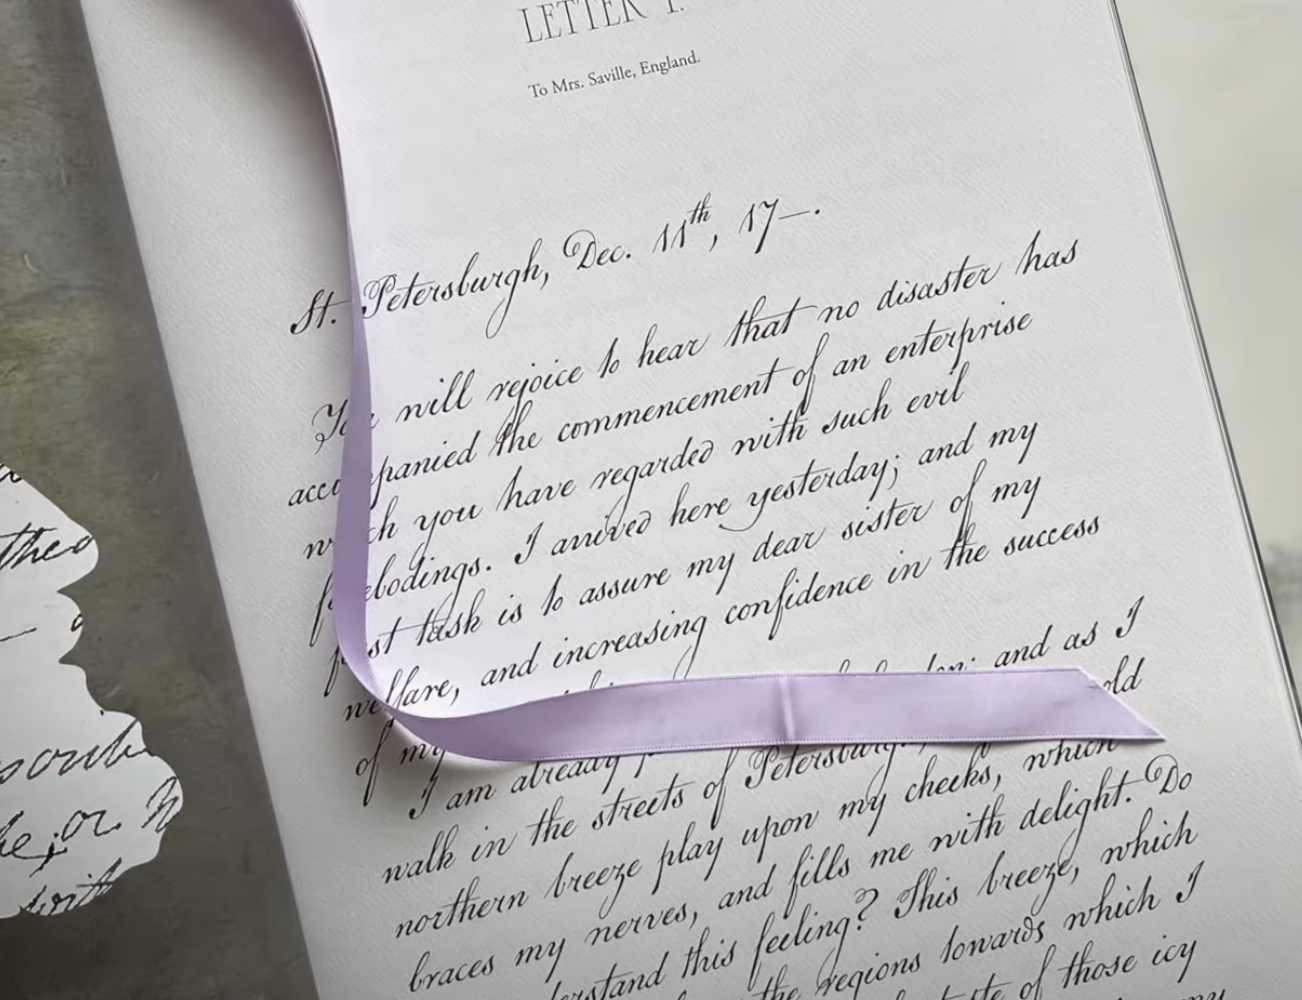 LETTER I.
To Mrs. Saville, England.
St. Petersburgh, Dec. 11th, 17—.
You will rejoice to hear that no disaster has
accompanied the commencement of an enterprise
which you have regarded with such evil
forebodings. I arrived here yesterday; and my
first task is to assure my dear sister of my
welfare, and increasing confidence in the success
of my
I am already and as I
walk in the streets of Petersburgh,
northern breeze play upon my cheeks, which
braces my nerves, and fills me with delight. Do
this feeling? This breeze, which
the regions towards which I
of those icy
my
or